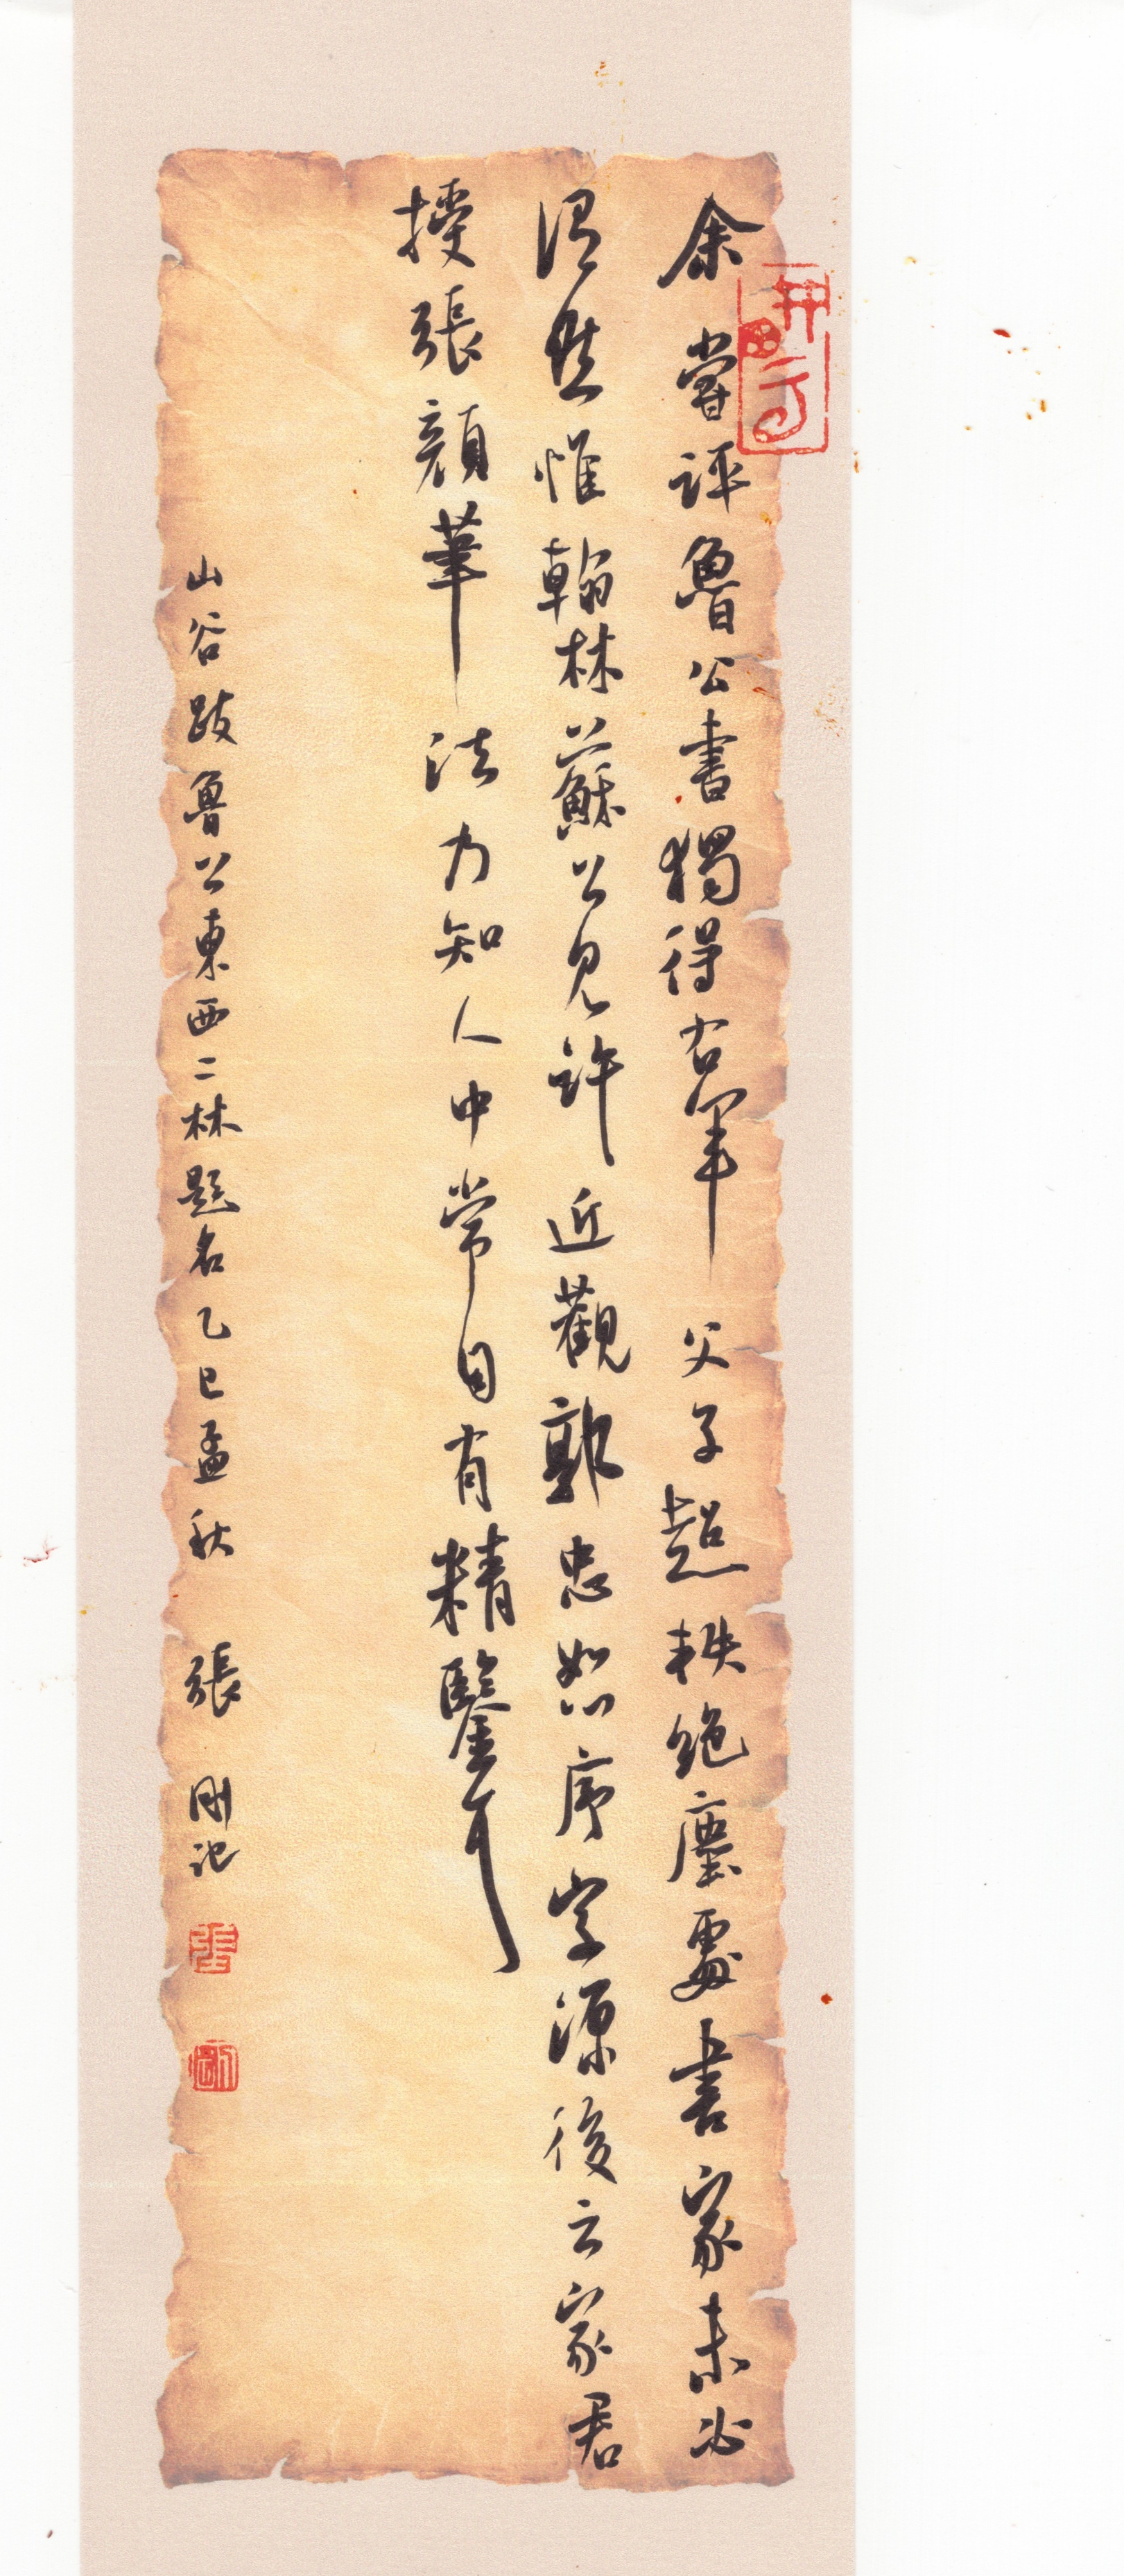 余嘗評魯公書獨得右軍父子超軼絕塵處書家未必
謂然惟翰林蘇公見許近觀郭忠恕序字源後云家君
授張顏筆法乃知人中常自有精鑒耳
山谷跋魯公東西二林題名乙巳孟秋 張剛記